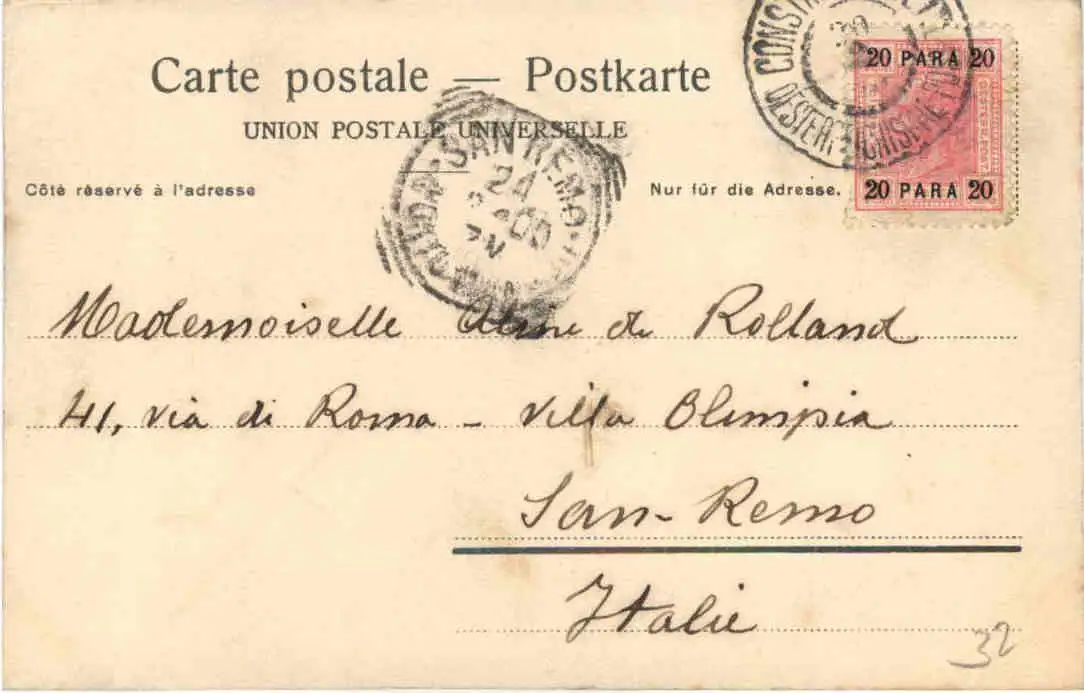 Carte postale — Postkarte
UNION POSTALE UNIVERSELLE
Côté réservé à l'adresse
Nur für die Adresse.
20 PARA 20
20 PARA 20
SAN REMO
24
00
Mademoiselle Aline de Rolland
41, Via di Roma - Villa Olimpia
San-Remo
Italie
32